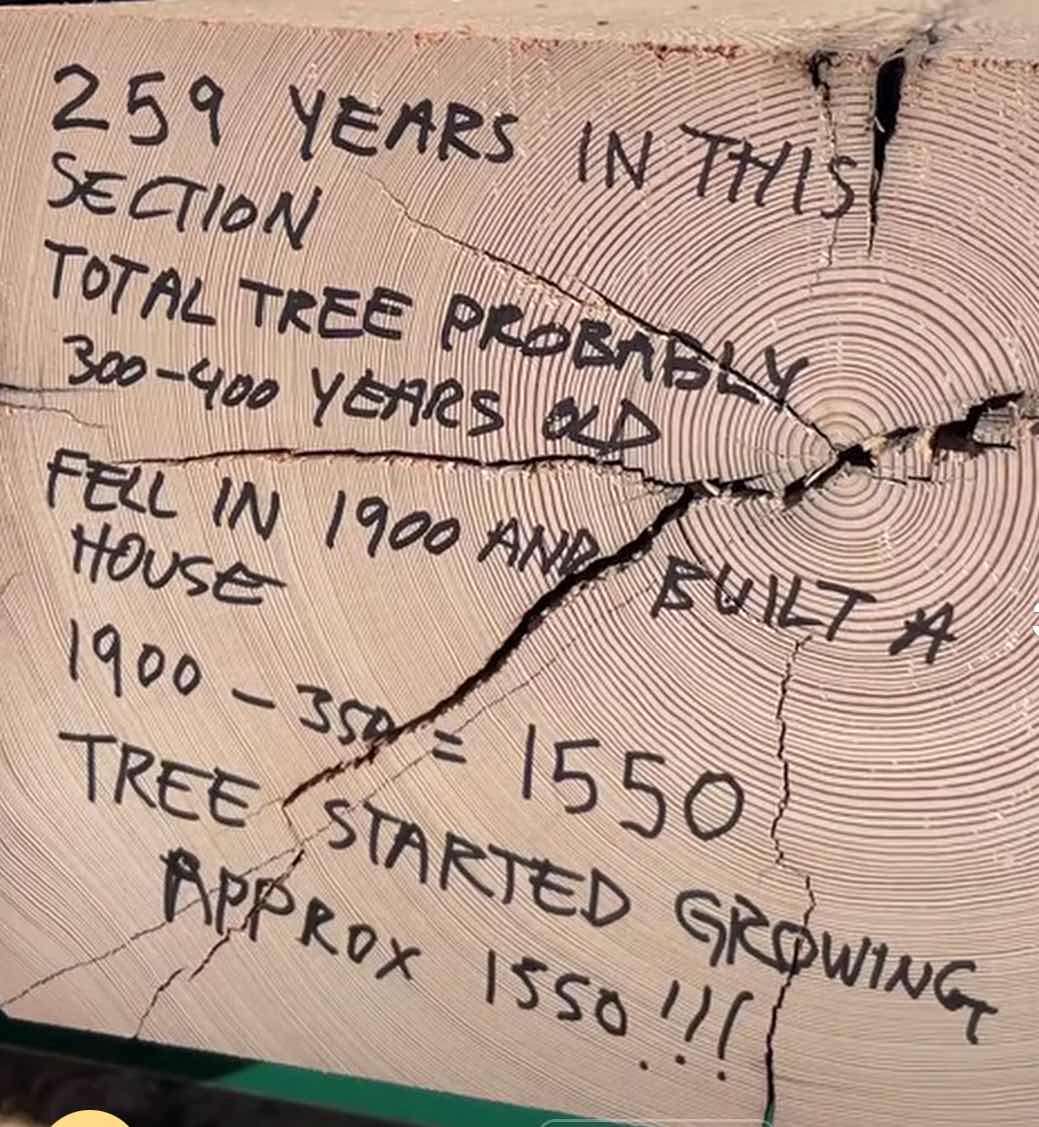 259 YEARS IN THIS
SECTION
TOTAL TREE PROBABLY
300-400 YEARS OLD
FELL IN 1900 AND BUILT A
HOUSE
1900 - 350 = 1550
TREE STARTED GROWING
APPROX 1550!!!